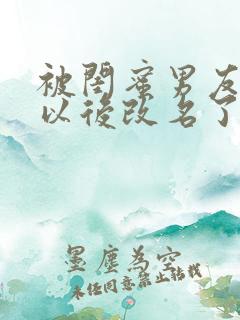 被閨蜜男友
以後改名了
墨塵為空
未经同意禁止转载